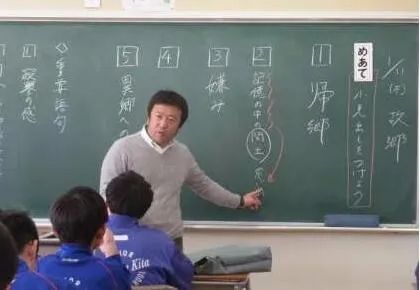 1/11(木) 故郷
めあて
小見出しをつけよう
1 帰郷
2 記憶の中の閏土
3 嫌み
4
5 異郷への
〈〉重要語句
① 寂寥の感
Kita